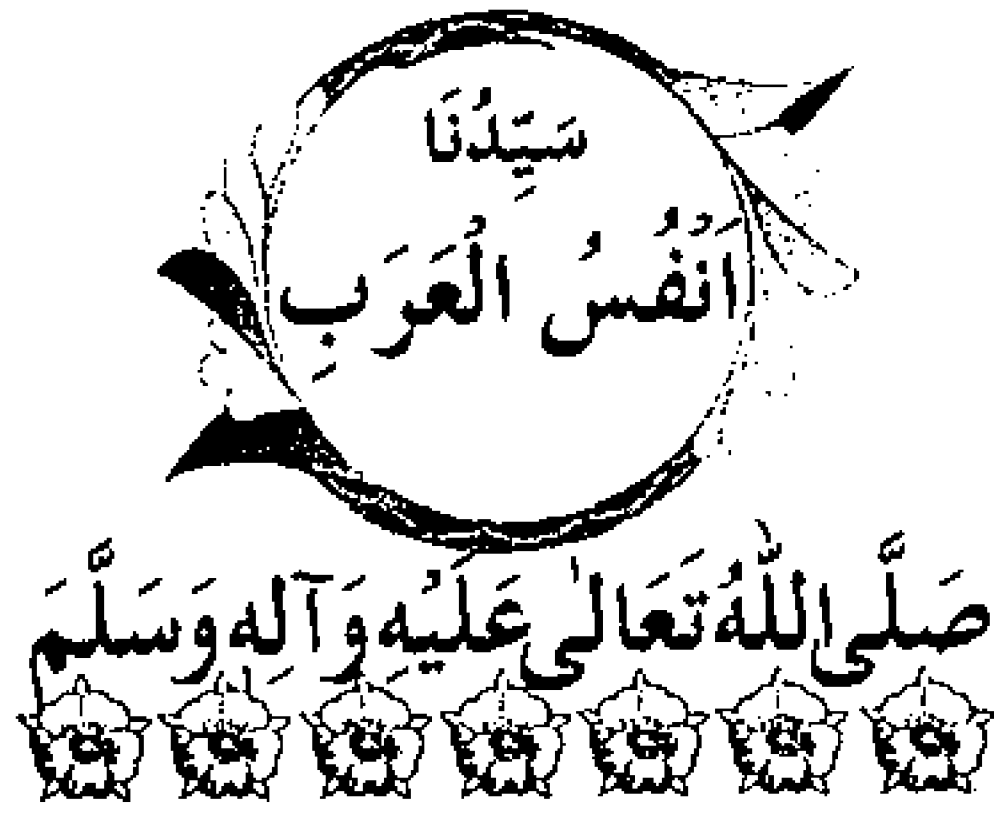 سَيِّدُنَا
اَنْفُسُ الْعَرَبِ
صَلَّى اللّٰهُ تَعَالٰى عَلَيْهِ وَآلِهِ وَسَلَّمَ